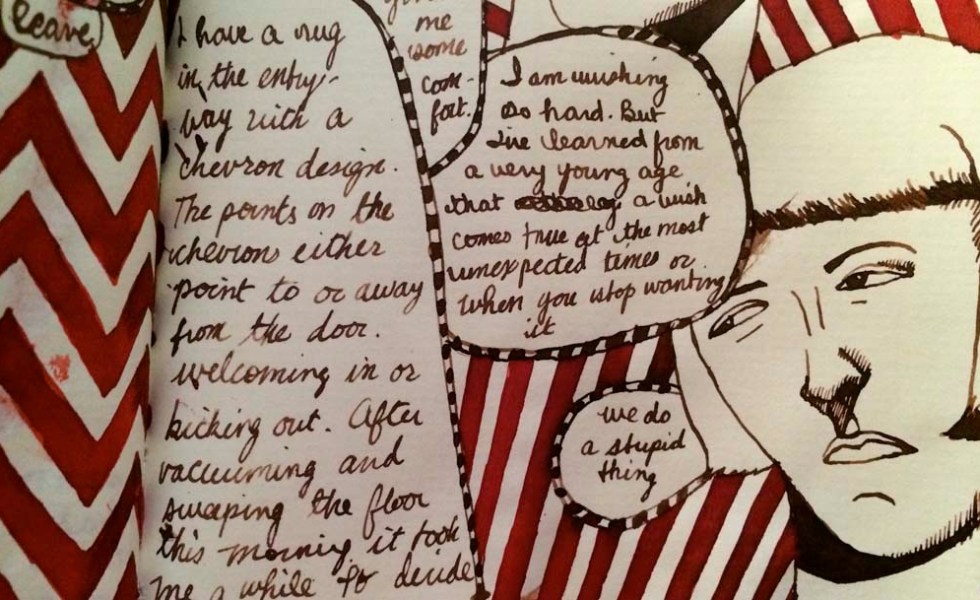 leave
I have a rug
in the entry-
way with a
chevron design.
The points on the
chevrons either
point to or away
from the door.
welcoming in or
kicking out. After
vacuuming and
sweeping the floor
this morning it took
me a while to decide
me
some
com-
fort.
I am wishing
so hard. But
I've learned from
a very young age
that a wish
comes true at the most
unexpected times or
when you stop wanting
it
we do
a stupid
thing